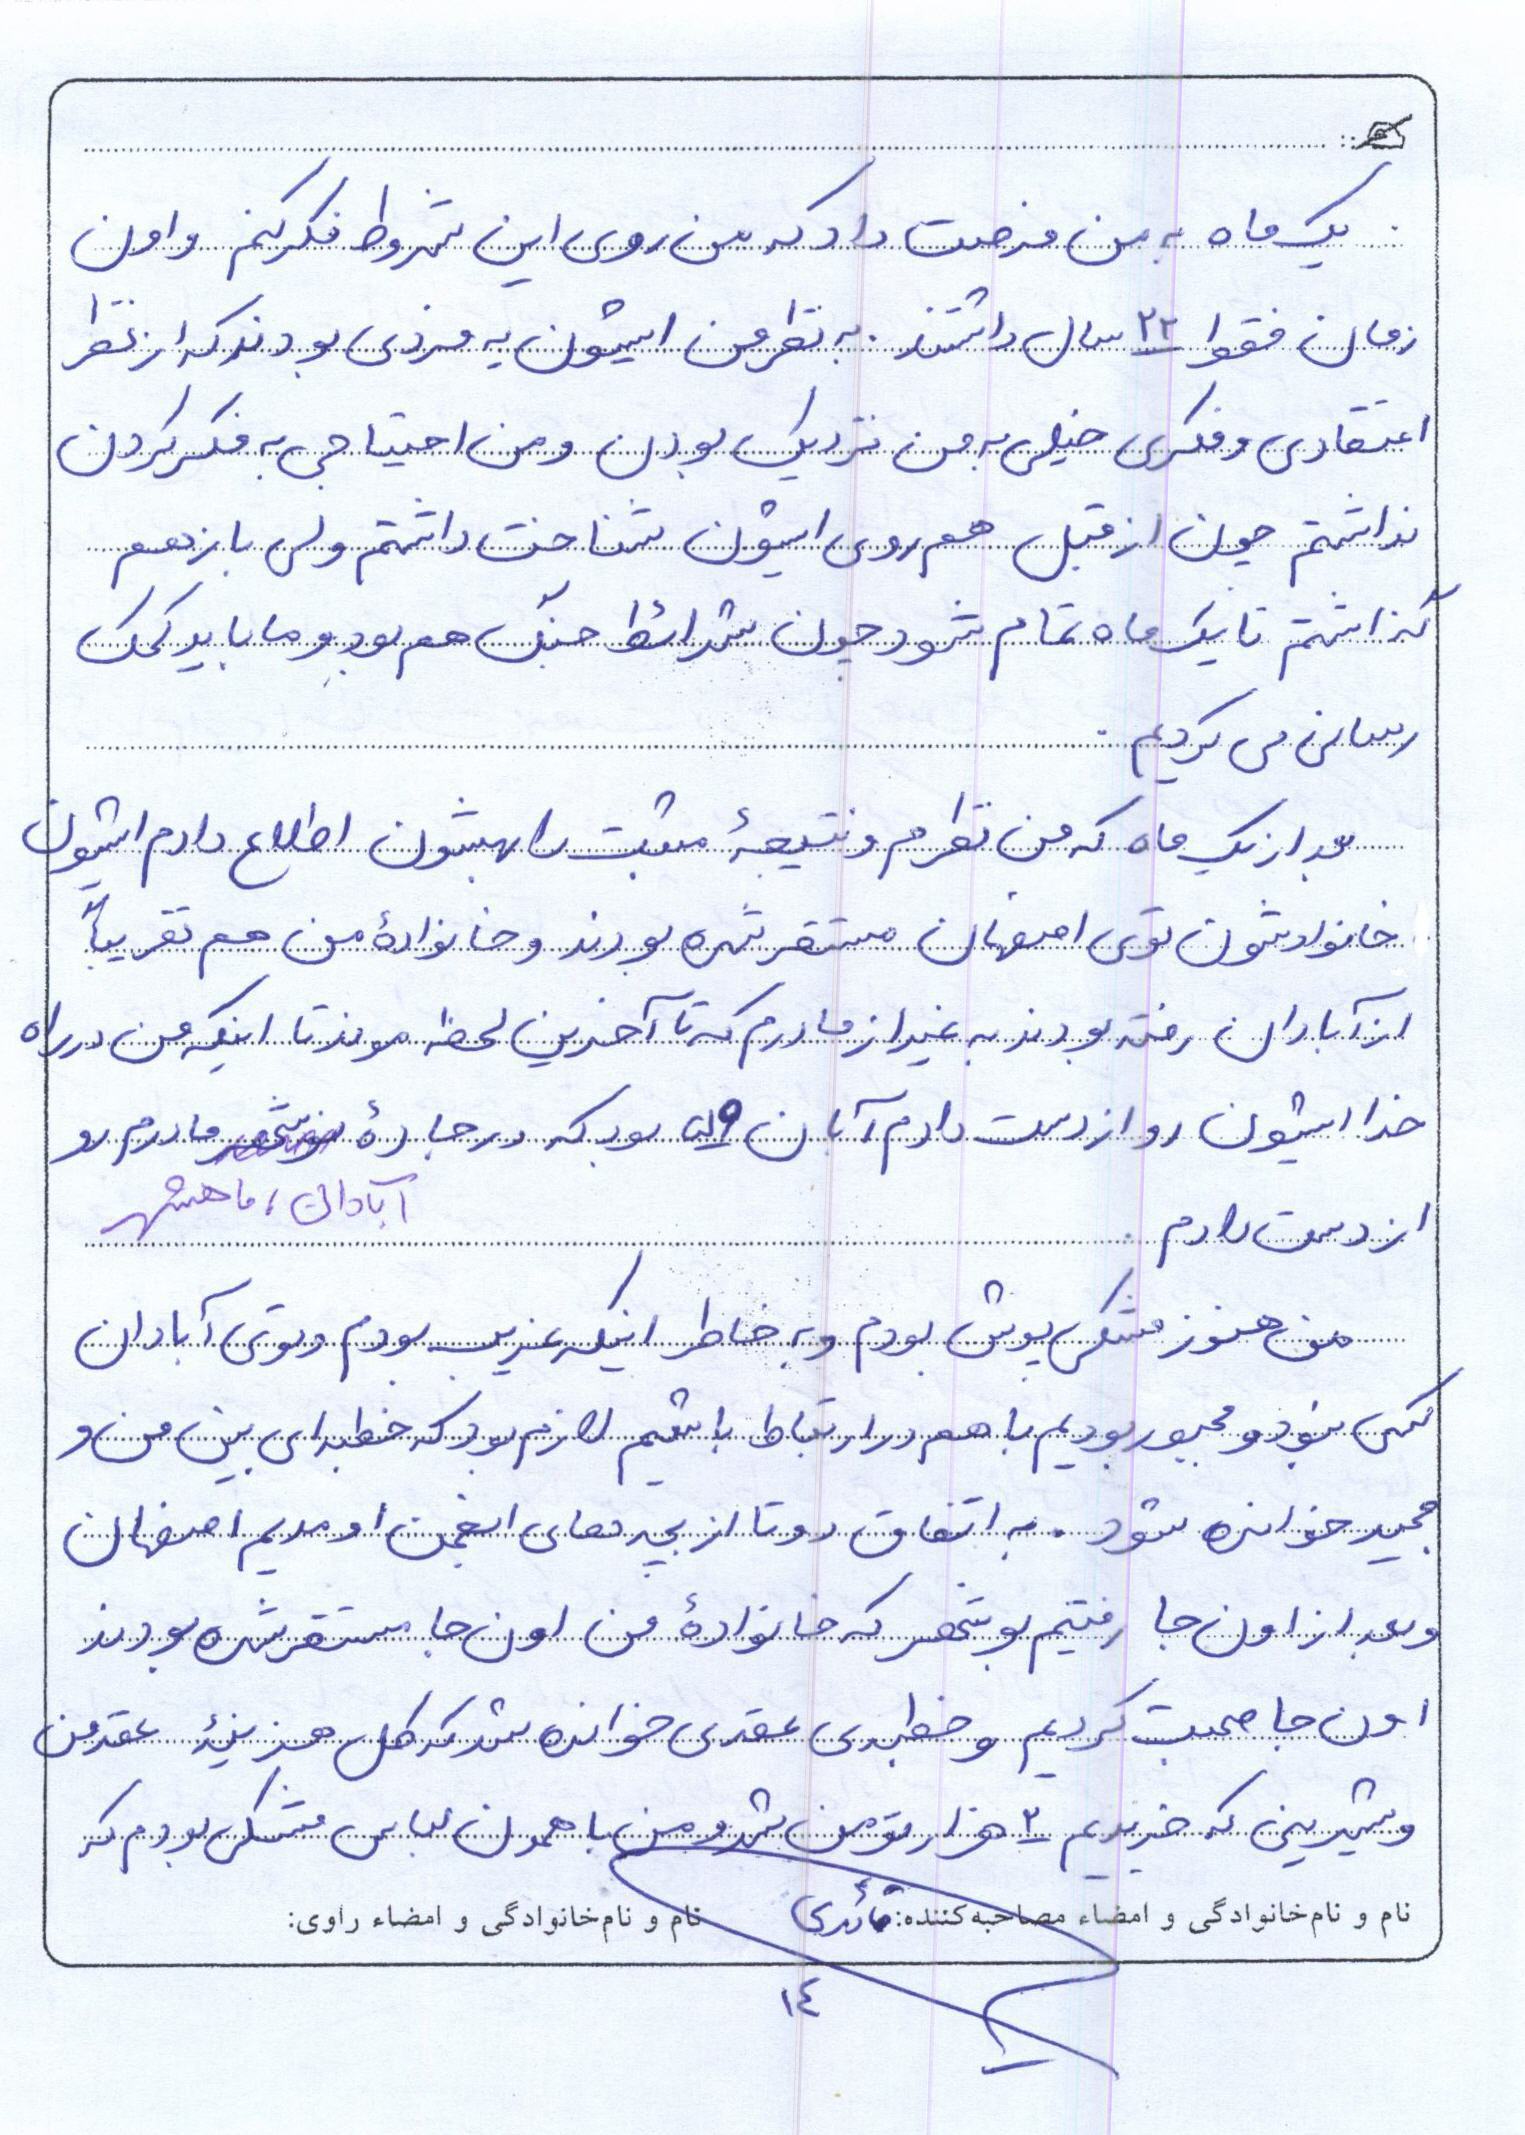 یک ماه به من فرصت داد که من روی این شروط فکر کنم و اون
زمان فقط ۲۲ سال داشتند. به نظر من ایشون یه فردی بودند که از نظر
اعتقادی و فکری خیلی به من نزدیک بودن و من احتیاجی به فکر کردن
نداشتم چون از قبل هم روی ایشون شناخت داشتم ولی باز هم
گذاشتم تا یک ماه تمام شود چون شرائط جنگ هم بود و ما باید کمک
رسانی می کردیم.
بعد از یک ماه که من نظرم و نتیجۀ مثبت را بهشون اطلاع دادم ایشون
خانوادشون توی اصفهان مستقر شده بودند و خانوادۀ من هم تقریباً
از آبادان رفته بودند به غیر از مادرم که تا آخرین لحظه موند تا اینکه من در راه
خدا ایشون رو از دست دادم آبان ۵۹ بود که در جادۀ بوشهر مادرم رو
آبادان، ماهشهر
از دست دادم.
من هنوز مشکی پوش بودم و به خاطر اینکه غریب بودم و توی آبادان
کسی نبود و مجبور بودیم با هم در ارتباط باشیم لازم بود که خطبه ای بین من و
مجید خوانده شود. به اتفاق دو تا از بچه های انجمن اومدیم اصفهان
و بعد از اون جا رفتیم بوشهر که خانوادۀ من اون جا مستقر شده بودند
اون جا صحبت کردیم و خطبه ی عقدی خوانده شد که کل هزینۀ عقد من
و شیرینی که خریدیم ۲ هزار تومن شد و من با همون لباس مشکی بودم که
نام و نام‌خانوادگی و امضاء مصاحبه‌کننده: قائدی نام و نام‌خانوادگی و امضاء راوی:
۱٤